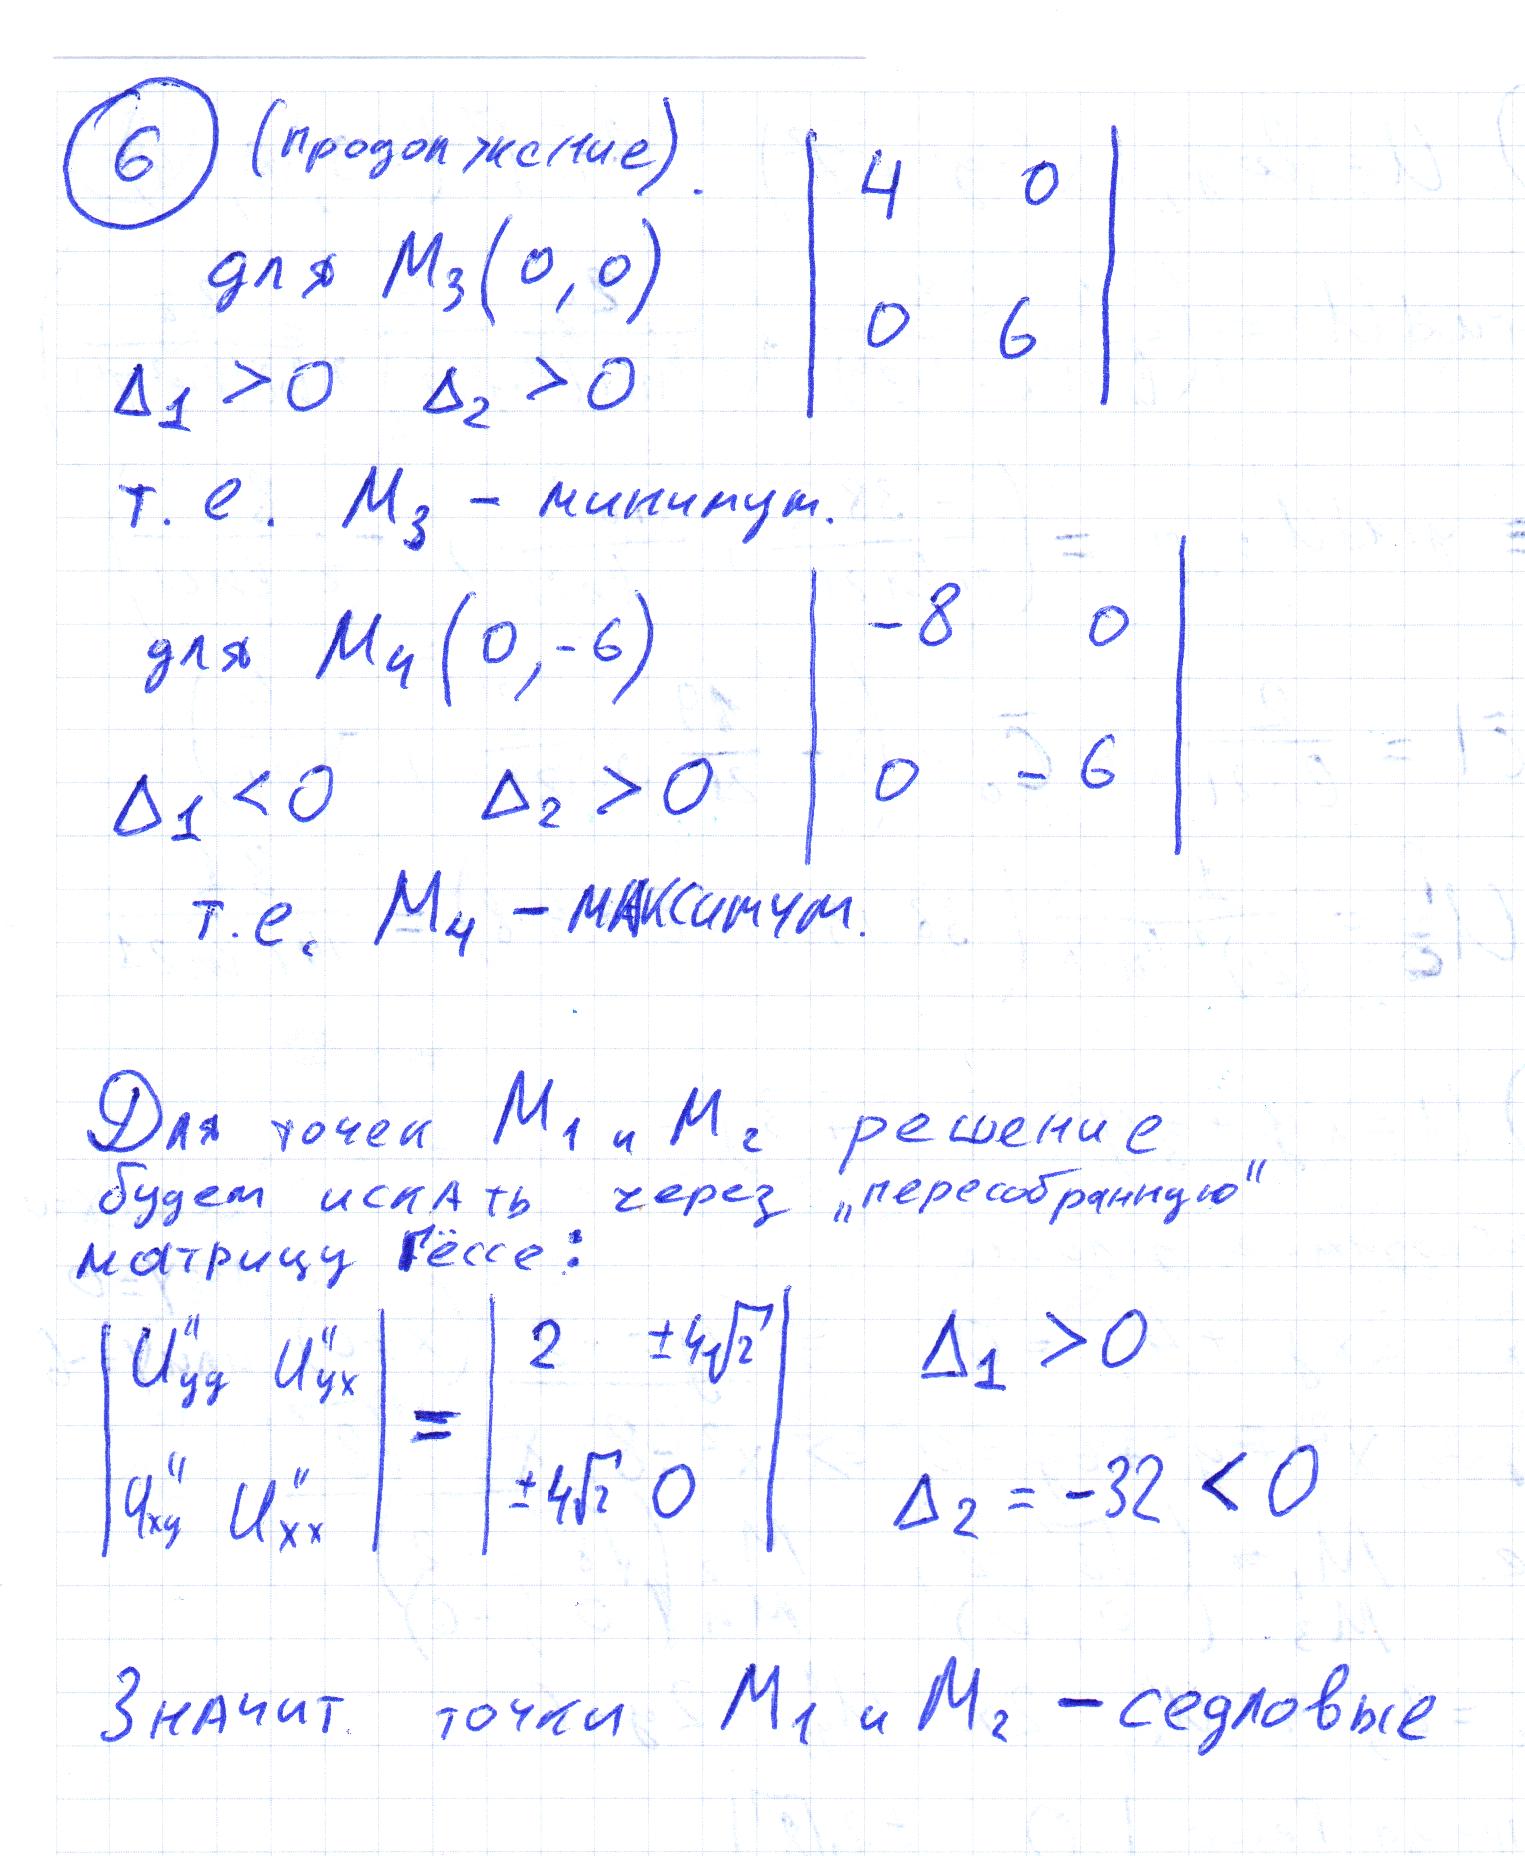 6 (продолжение).
| 4 0 |
| 0 6 |
для M₃(0,0)
Δ₁ > 0 Δ₂ > 0
т.е. M₃ - минимум.
для M₄(0,-6)
| -8 0 |
| 0 -6 |
Δ₁ < 0 Δ₂ > 0
т.е. M₄ - максимум.
Для точек M₁ и M₂ решение
будем искать через „пересобранную“
матрицу Гёссе:
| U″yy U″yx | = | 2 ±4√2 | Δ₁ > 0
| U″xy U″xx | | ±4√2 0 | Δ₂ = -32 < 0
Значит точки M₁ и M₂ - седловые